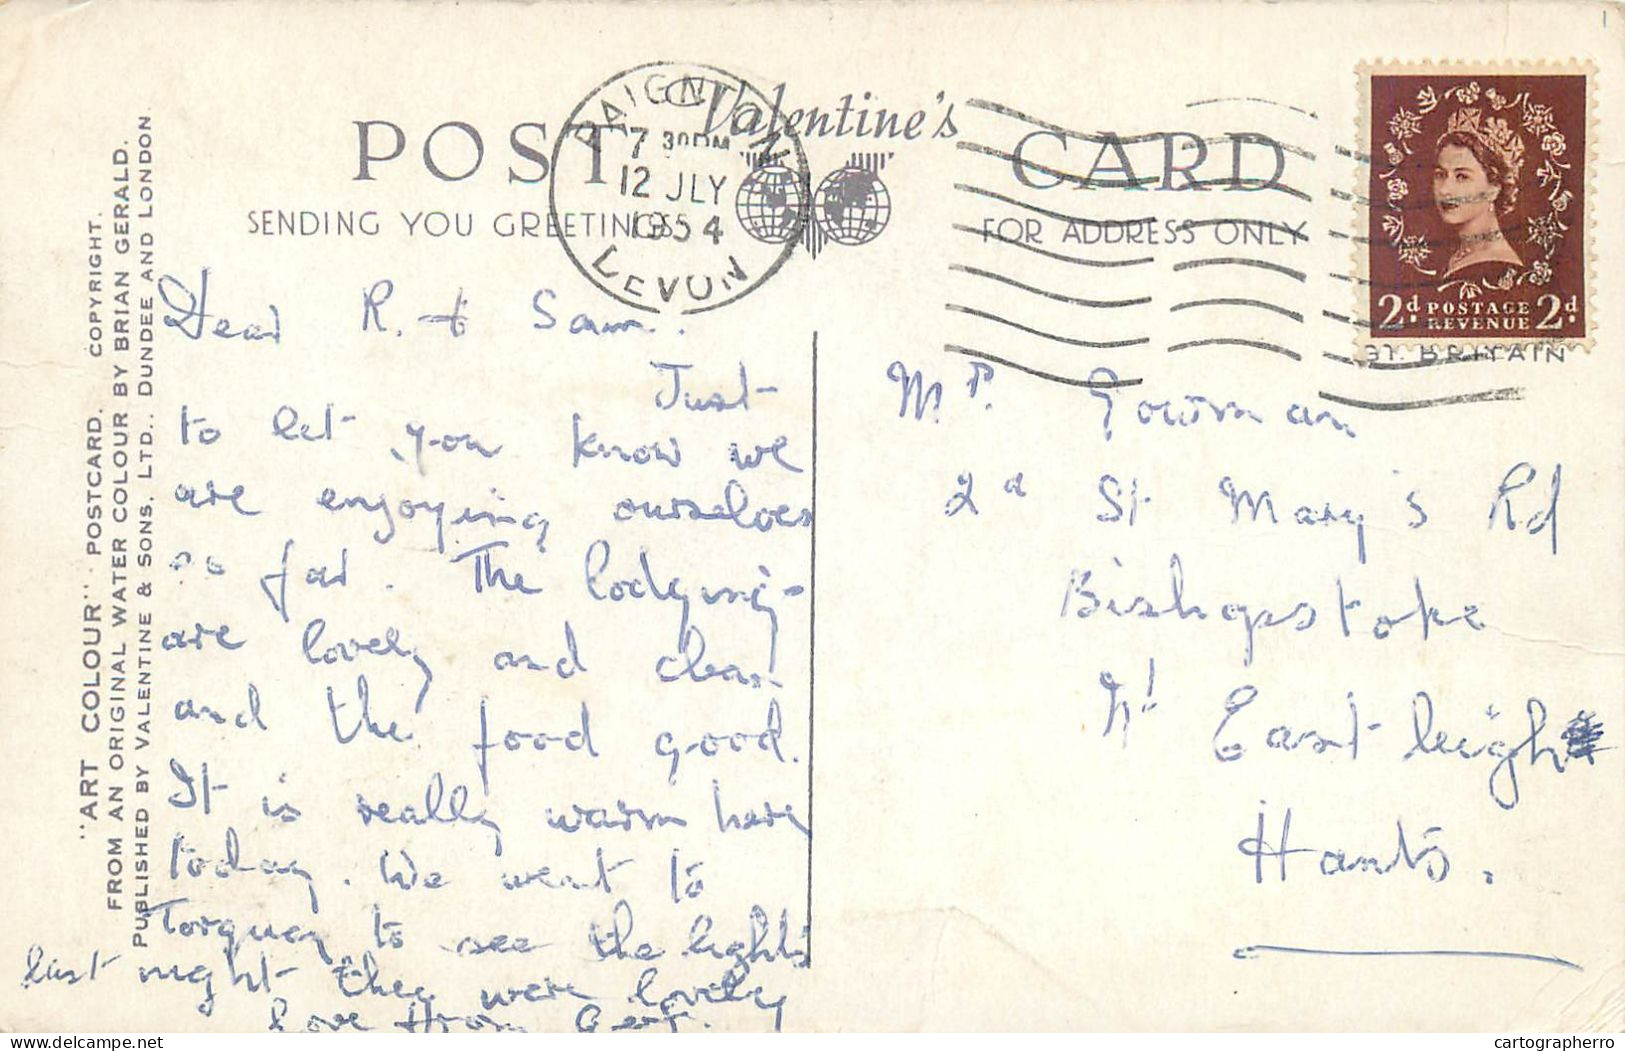 POST CARD
Valentine's
SENDING YOU GREETINGS
FOR ADDRESS ONLY
PAIGNTON
7 30 PM
12 JLY
1954
DEVON
2d POSTAGE REVENUE 2d
GT. BRITAIN
"ART COLOUR" POSTCARD. COPYRIGHT.
FROM AN ORIGINAL WATER COLOUR BY BRIAN GERALD.
PUBLISHED BY VALENTINE & SONS, LTD., DUNDEE AND LONDON
Dear R. & Sam.
Just
to let you know we
are enjoying ourselves
so far. The lodging
are lovely and clean
and the food good.
It is really warm here
today. We went to
Torquay to see the lights
last night they were lovely
Love from
Mr.
2a St Mary's Rd
Bishopstoke
Nr Eastleigh
Hants.
cartographerro
delcampe.net